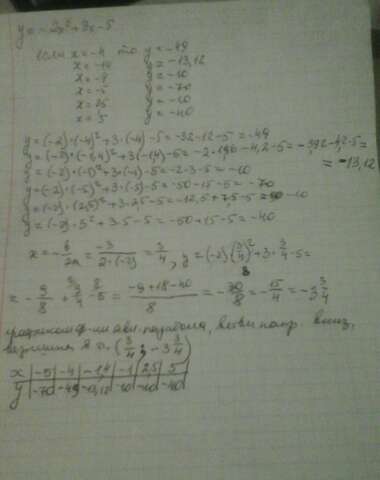 y = -2x² + 3x - 5
если x = -4 то y = -49
x = -1,4 y = -13,12
x = -1 y = -10
x = -5 y = -70
x = 2,5 y = -10
x = 5 y = -40
y = (-2)·(-4)² + 3·(-4) - 5 = -32 - 12 - 5 = -49
y = (-2)·(-1,4)² + 3·(-1,4) - 5 = -2·1,96 - 4,2 - 5 = -3,92 - 4,2 - 5 =
= -13,12
y = (-2)·(-1)² + 3·(-1) - 5 = -2 - 3 - 5 = -10
y = (-2)·(-5)² + 3·(-5) - 5 = -50 - 15 - 5 = -70
y = (-2)·(2,5)² + 3·2,5 - 5 = -12,5 + 7,5 - 5 = -10
y = (-2)·5² + 3·5 - 5 = -50 + 15 - 5 = -40
x = -b/2a = -3/2·(-2) = 3/4, y = (-2)·(3/4)² + 3·3/4 - 5 =
= -9/8 + 9/4 - 5 = -9 + 18 - 40/8 = -30/8 = -15/4 = -3 3/4
графиком ф-ии явл. парабола, ветви напр. вниз,
вершина в т. (3/4; -3 3/4)
x | -5 | -4 | -1,4 | -1 | 2,5 | 5
y | -70 | -49 | -13,12 | -10 | -10 | -40